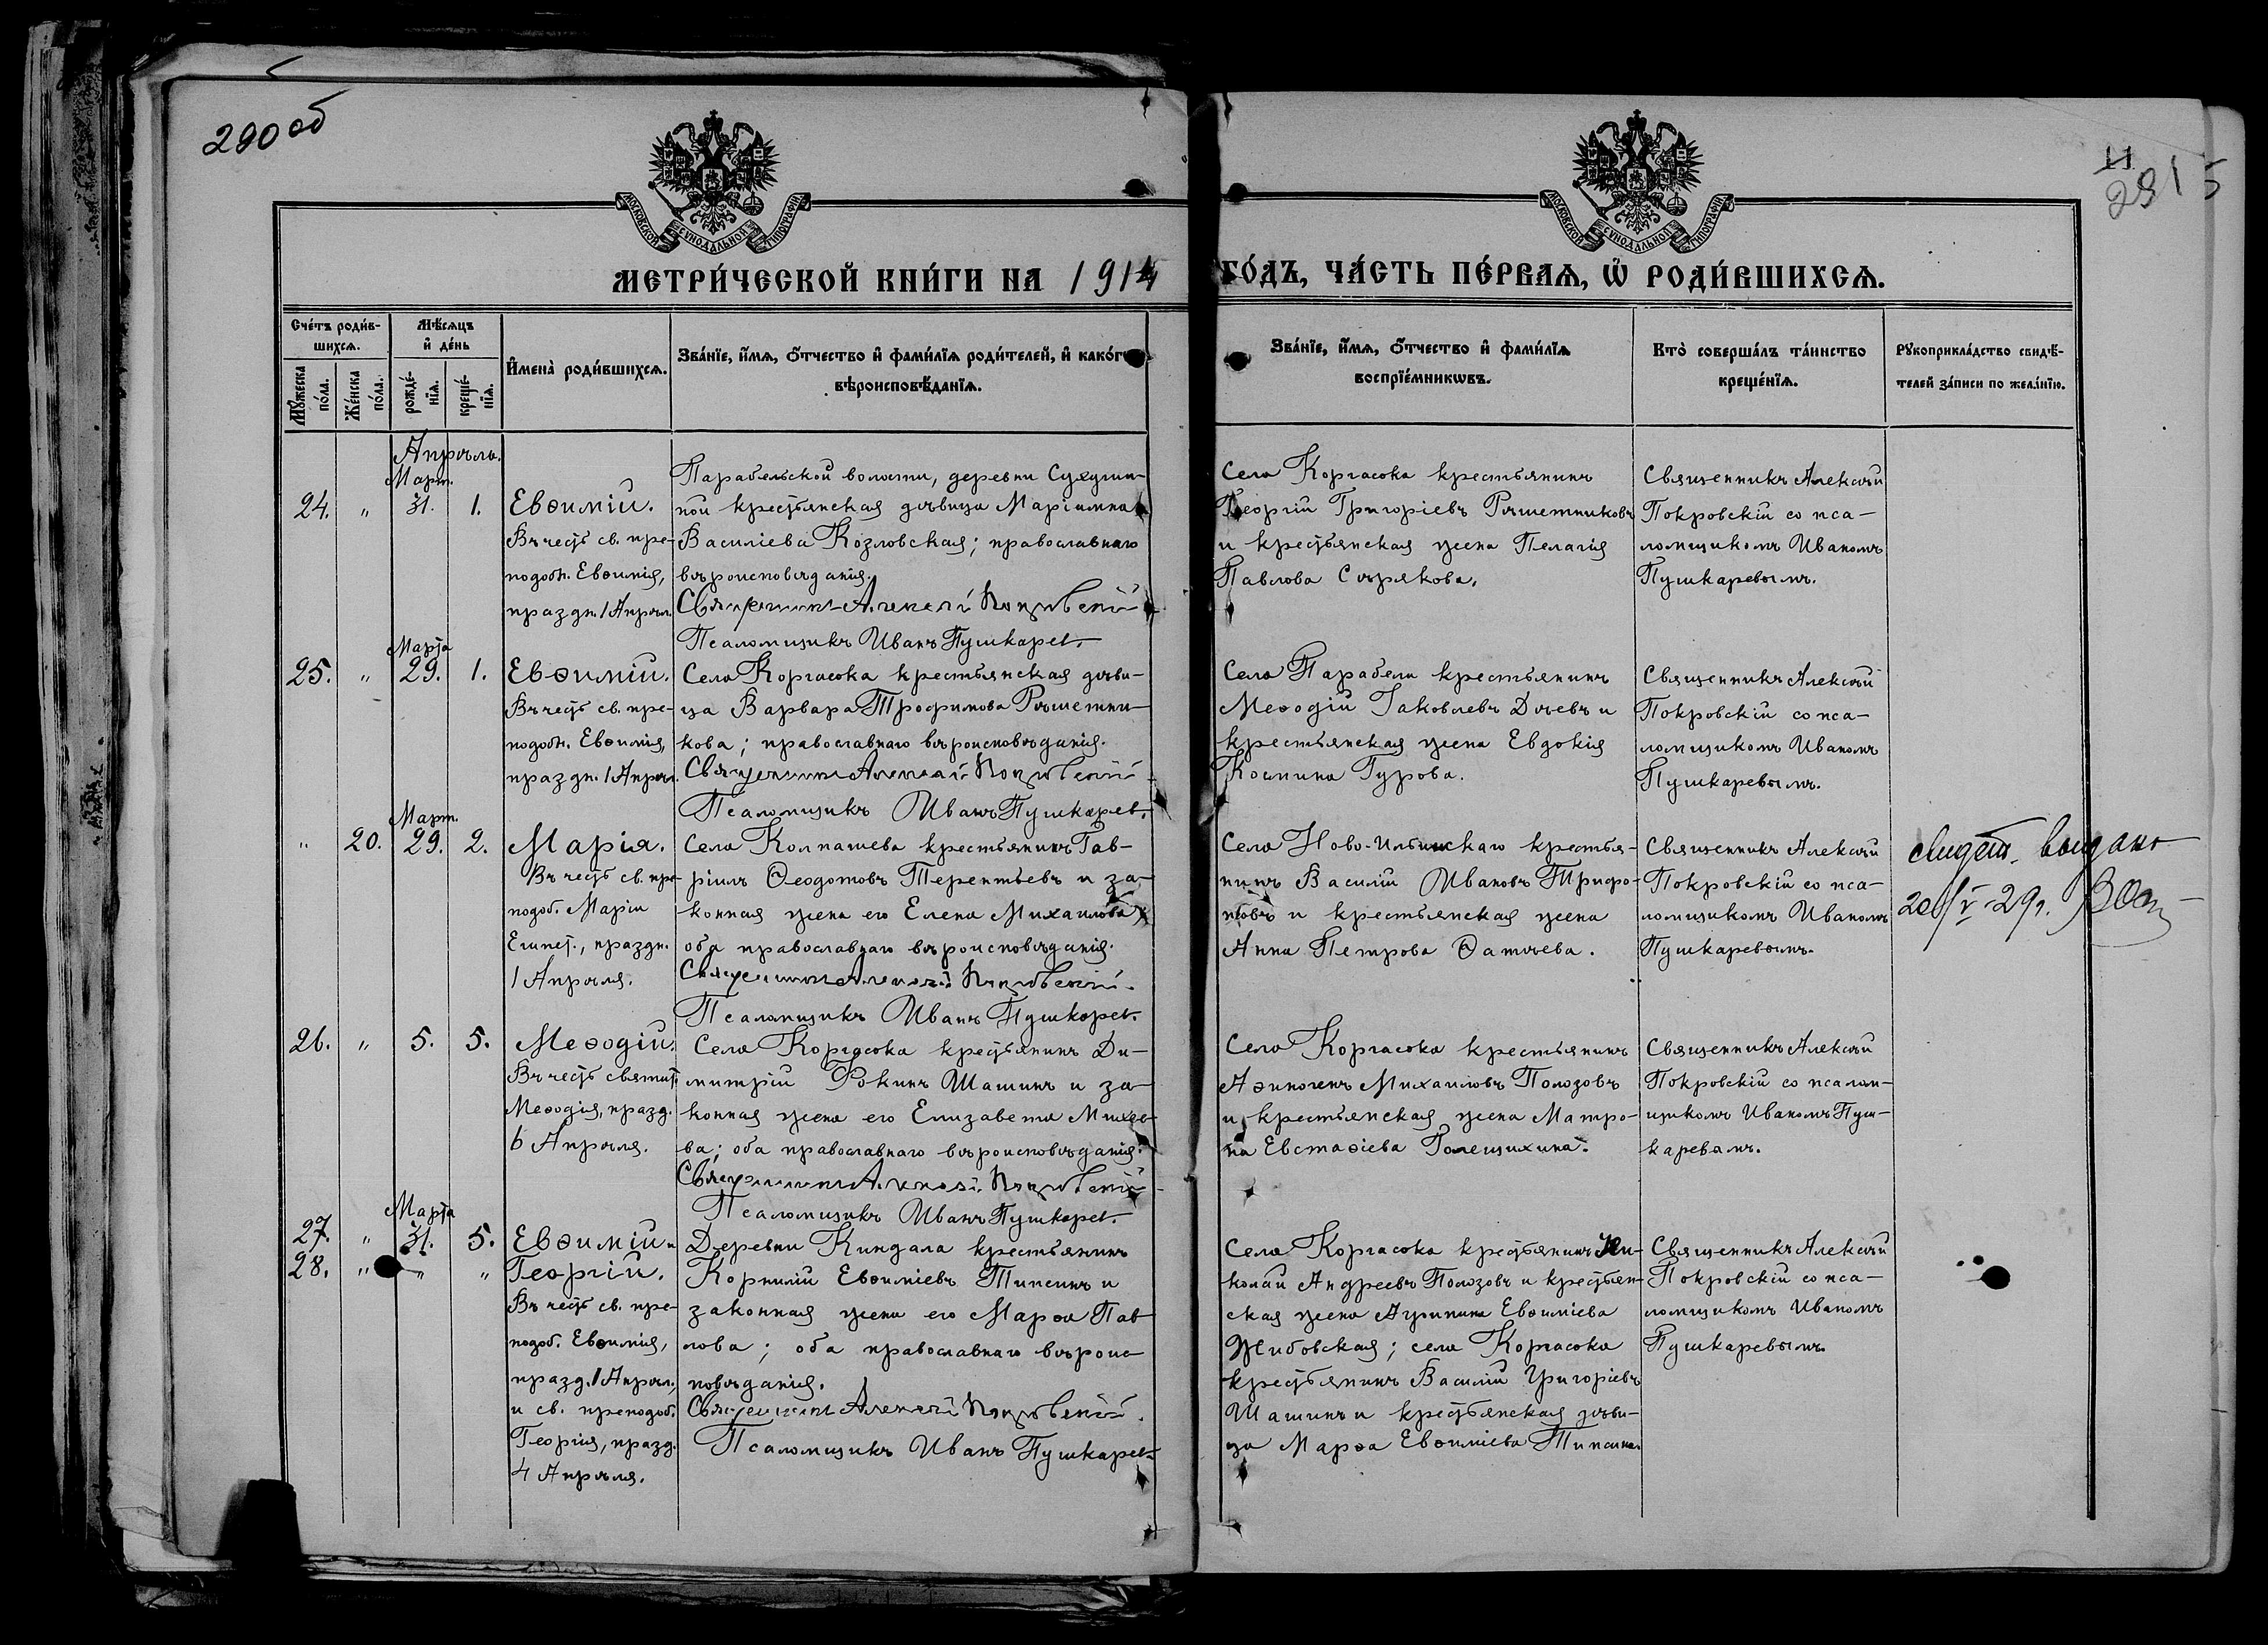 290 об
291
МОСКОВСКОЙ СУНОДАЛЬНОЙ ТИПОГРАФІИ
МОСКОВСКОЙ СУНОДАЛЬНОЙ ТИПОГРАФІИ
МЕТРИ́ЧЕСКОЙ КНИ́ГИ НА 1914
ГО́ДЪ, ЧА́СТЬ ПЕ́РВАѦ, Ѡ҆ РОДИ́ВШИХСѦ.
Сче́тъ роди́в-
шихсѧ.
Мѣ́сѧцъ
и҆ де́нь
Мꙋ́жеска
по́ла.
Же́нска
по́ла.
рожде́-
нїѧ.
креще́-
нїѧ.
И҆мена̀ роди́вшихсѧ.
Зва́нїе, и҆́мѧ, ѻ҆́тчество и҆ фами́лїѧ роди́телей, и҆ како́г
вѣроисповѣ́данїѧ.
Зва́нїе, и҆́мѧ, ѻ҆́тчество и҆ фами́лїѧ
воспрїе́мникѡвъ.
Кто̀ соверша́лъ та́инство
креще́нїѧ.
Рꙋкоприкла́дство свидѣ́-
телей за́писи по жела́нїю.
Апрѣль.
Март.
24. „ 31. 1.
Евѳимій.
Въ честь св. пре-
подобн. Евѳимія,
праздн. 1 Апрѣл.
Парабельской волости, деревни Сухушин-
ной крестьянская дѣвица Маріамна
Василіева Козловская; православнаго
вѣроисповѣданія.
Священникъ Алексій Покровскій
Псаломщикъ Иванъ Пушкарев.
Села Коргасока крестьянинъ
Георгій Григоріевъ Рѣшетниковъ
и крестьянская жена Пелагія
Павлова Сѣрякова.
Священникъ Алексѣй
Покровскій со пса-
ломщикомъ Иваномъ
Пушкаревымъ.
Марта
25. „ 29. 1.
Евѳимій.
Въ честь св. пре-
подобн. Евѳимія,
праздн. 1 Апрѣл.
Села Коргасока крестьянская дѣви-
ца Варвара Трофимова Рѣшетни-
кова; православнаго вѣроисповѣданія.
Священникъ Алексій Покровскій
Псаломщикъ Иванъ Пушкарев.
Села Парабели крестьянинъ
Меѳодій Іаковлевъ Дѣевъ и
крестьянская жена Евдокія
Космина Гурова.
Священникъ Алексѣй
Покровскій со пса-
ломщикомъ Иваномъ
Пушкаревымъ.
Март.
„ 20. 29. 2.
Марія.
Въ честь св. пре-
подоб. Маріи
Египет., праздн.
1 Апрѣля.
Села Колпашева крестьянинъ Гав-
ріилъ Ѳеодотовъ Терентьевъ и за-
конная жена его Елена Михаилова
оба православнаго вѣроисповѣданія.
Священникъ Алексій Покровскій.
Псаломщикъ Иванъ Пушкарев.
Села Ново-Ильинскаго крестья-
нинъ Василій Ивановъ Трифо-
новъ и крестьянская жена
Анна Петрова Ѳатѣева.
Священникъ Алексѣй
Покровскій со пса-
ломщикомъ Иваномъ
Пушкаревымъ.
свидет. выдано
20/V-29г.
26. „ 5. 5.
Меѳодій.
Въ честь святит.
Меѳодія, празд.
6 Апрѣля.
Села Коргасока крестьянинъ Ди-
митрій Фокинъ Шашинъ и за-
конная жена его Елизавета Михее-
ва; оба православнаго вѣроисповѣданія.
Священникъ Алексій Покровскій
Псаломщикъ Иванъ Пушкарев.
Села Коргасока крестьянинъ
Аѳиногенъ Михаиловъ Полозовъ
и крестьянская жена Матро-
на Евстаѳіева Голещихина.
Священникъ Алексѣй
Покровскій со псалом-
щикомъ Иваномъ Пуш-
каревымъ.
Марта
27. „ 31. 5.
28. „ „ „
Евѳимій и
Георгій.
Въ честь св. пре-
подоб. Евѳимія,
празд. 1 Апрѣл.,
и св. преподоб.
Георгія, празд.
4 Апрѣля.
Деревни Киндала крестьянинъ
Корнилій Евѳиміевъ Типсинъ и
законная жена его Марѳа Пав
лова; оба православнаго вѣроис
повѣданія.
Священникъ Алексій Покровскій.
Псаломщикъ Иванъ Пушкарев.
Села Коргасока крестьянинъ Ни-
колай Андреевъ Полозовъ и крестьян-
ская жена Агрипина Евѳиміева
Жибовская; села Коргасока
крестьянинъ Василій Григоріевъ
Шашинъ и крестьянская дѣви-
ца Марѳа Евѳиміева Типсина.
Священникъ Алексѣй
Покровскій со пса-
ломщикомъ Иваномъ
Пушкаревымъ.